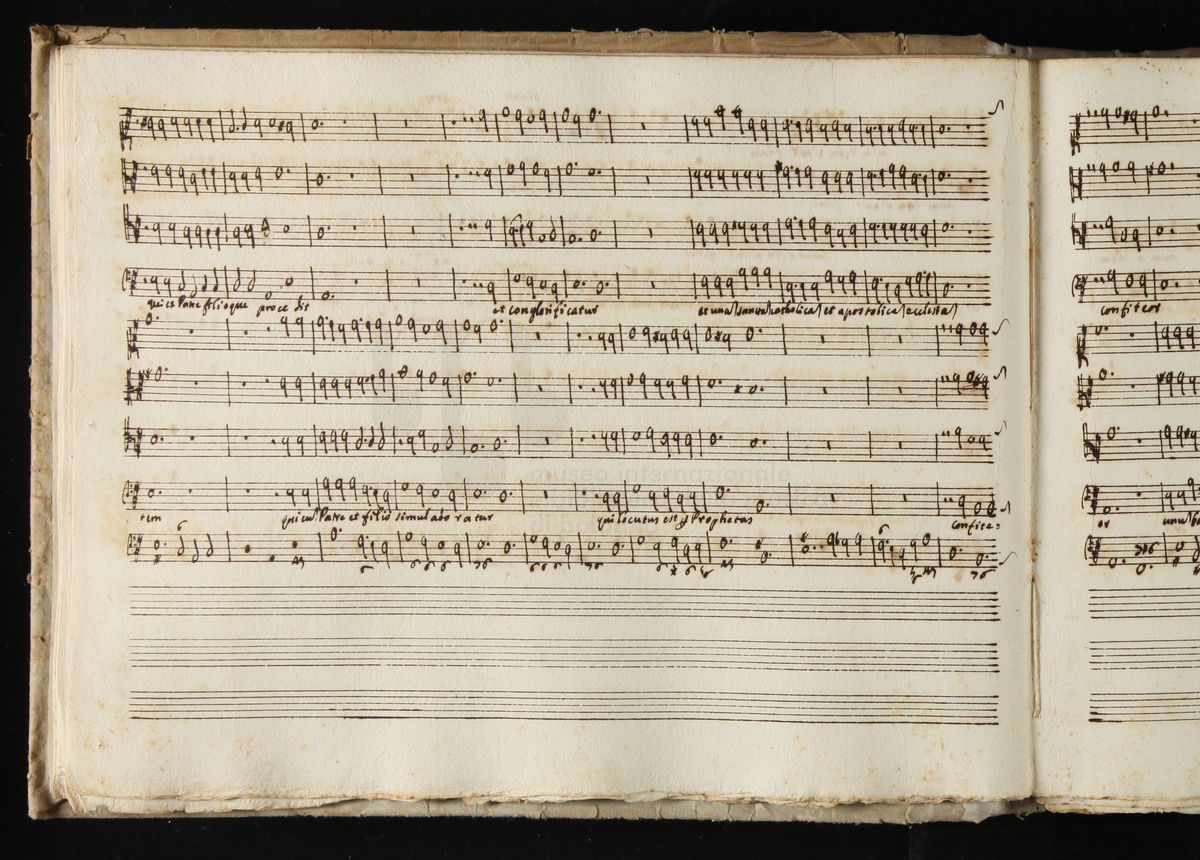 qui ex Patre filioque proce dit et conglorificatur et una sancta catholica et apostolica ecclesia
confiteor
tem qui cu Patre et filio simulado ratur qui locutus est Prophetas Confite=
or unu ba
museo internazionale